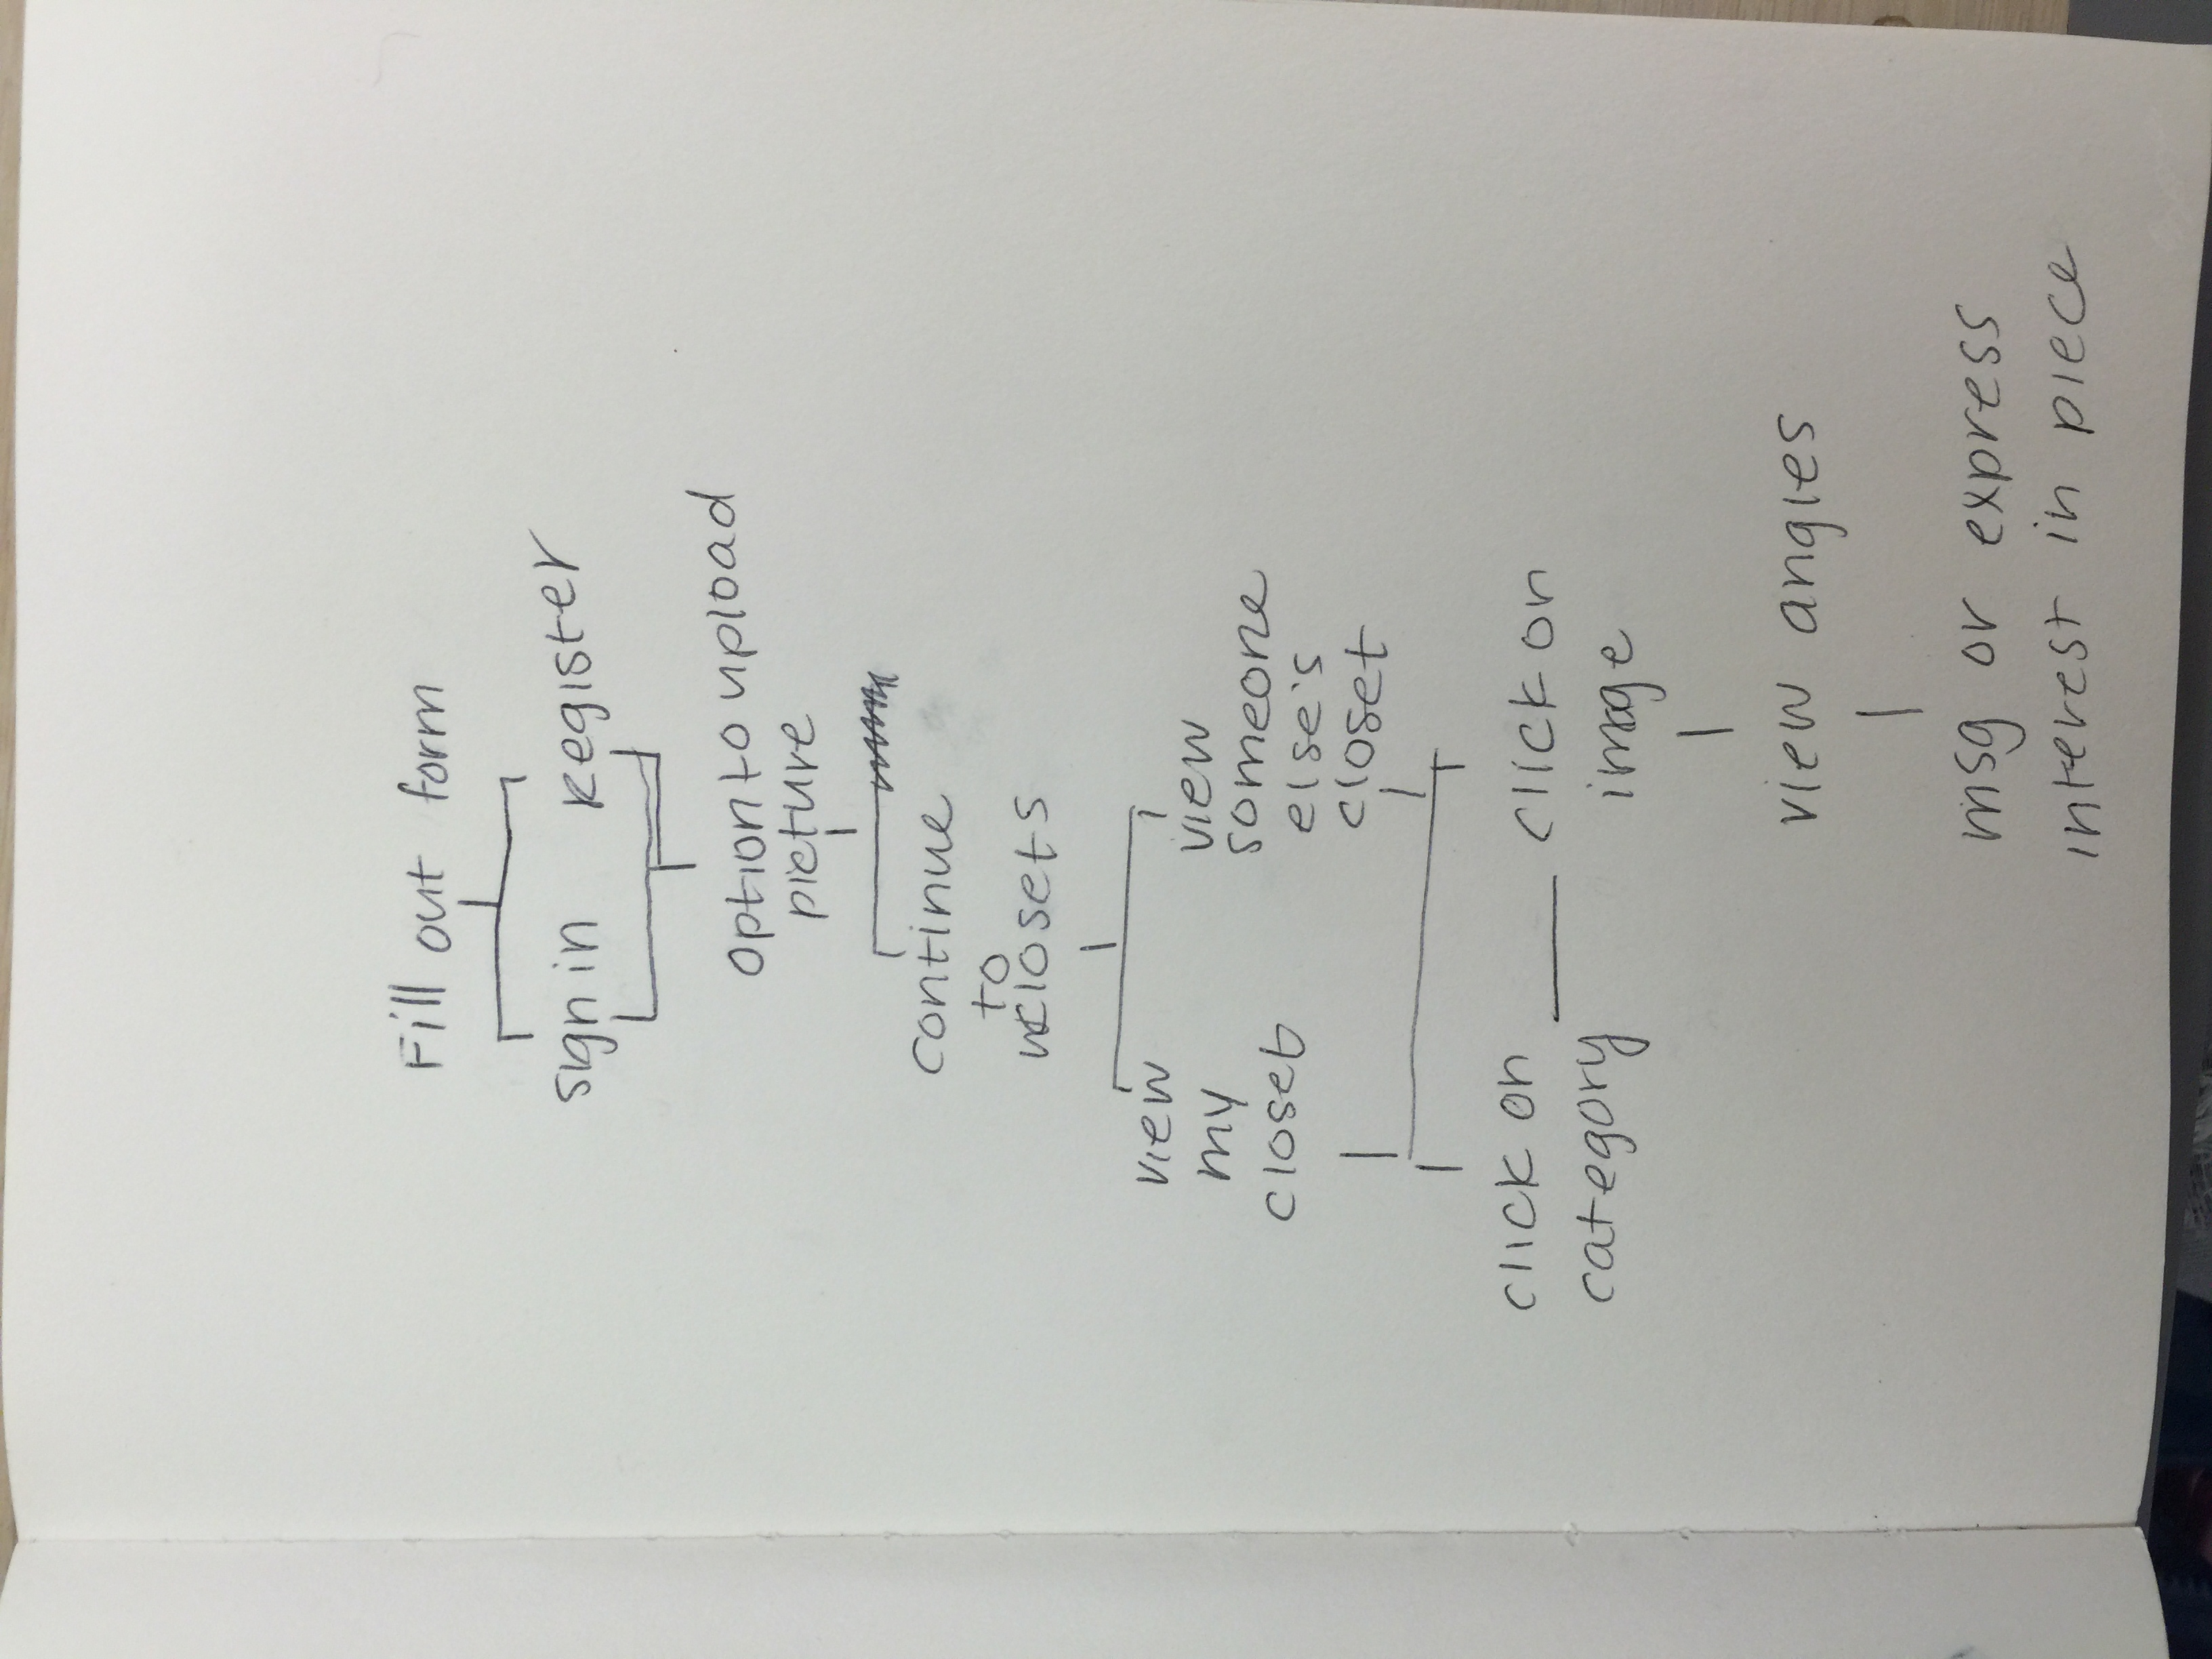 Fill out form
sign in Register
option to upload
picture
continue
to
closets
view
my
closet
view
someone
else's
closet
click on
category
click on
image
view angles
msg or express
interest in piece